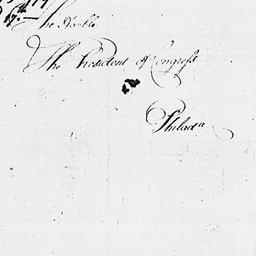 17th
The Honble
The President of Congress
Philada